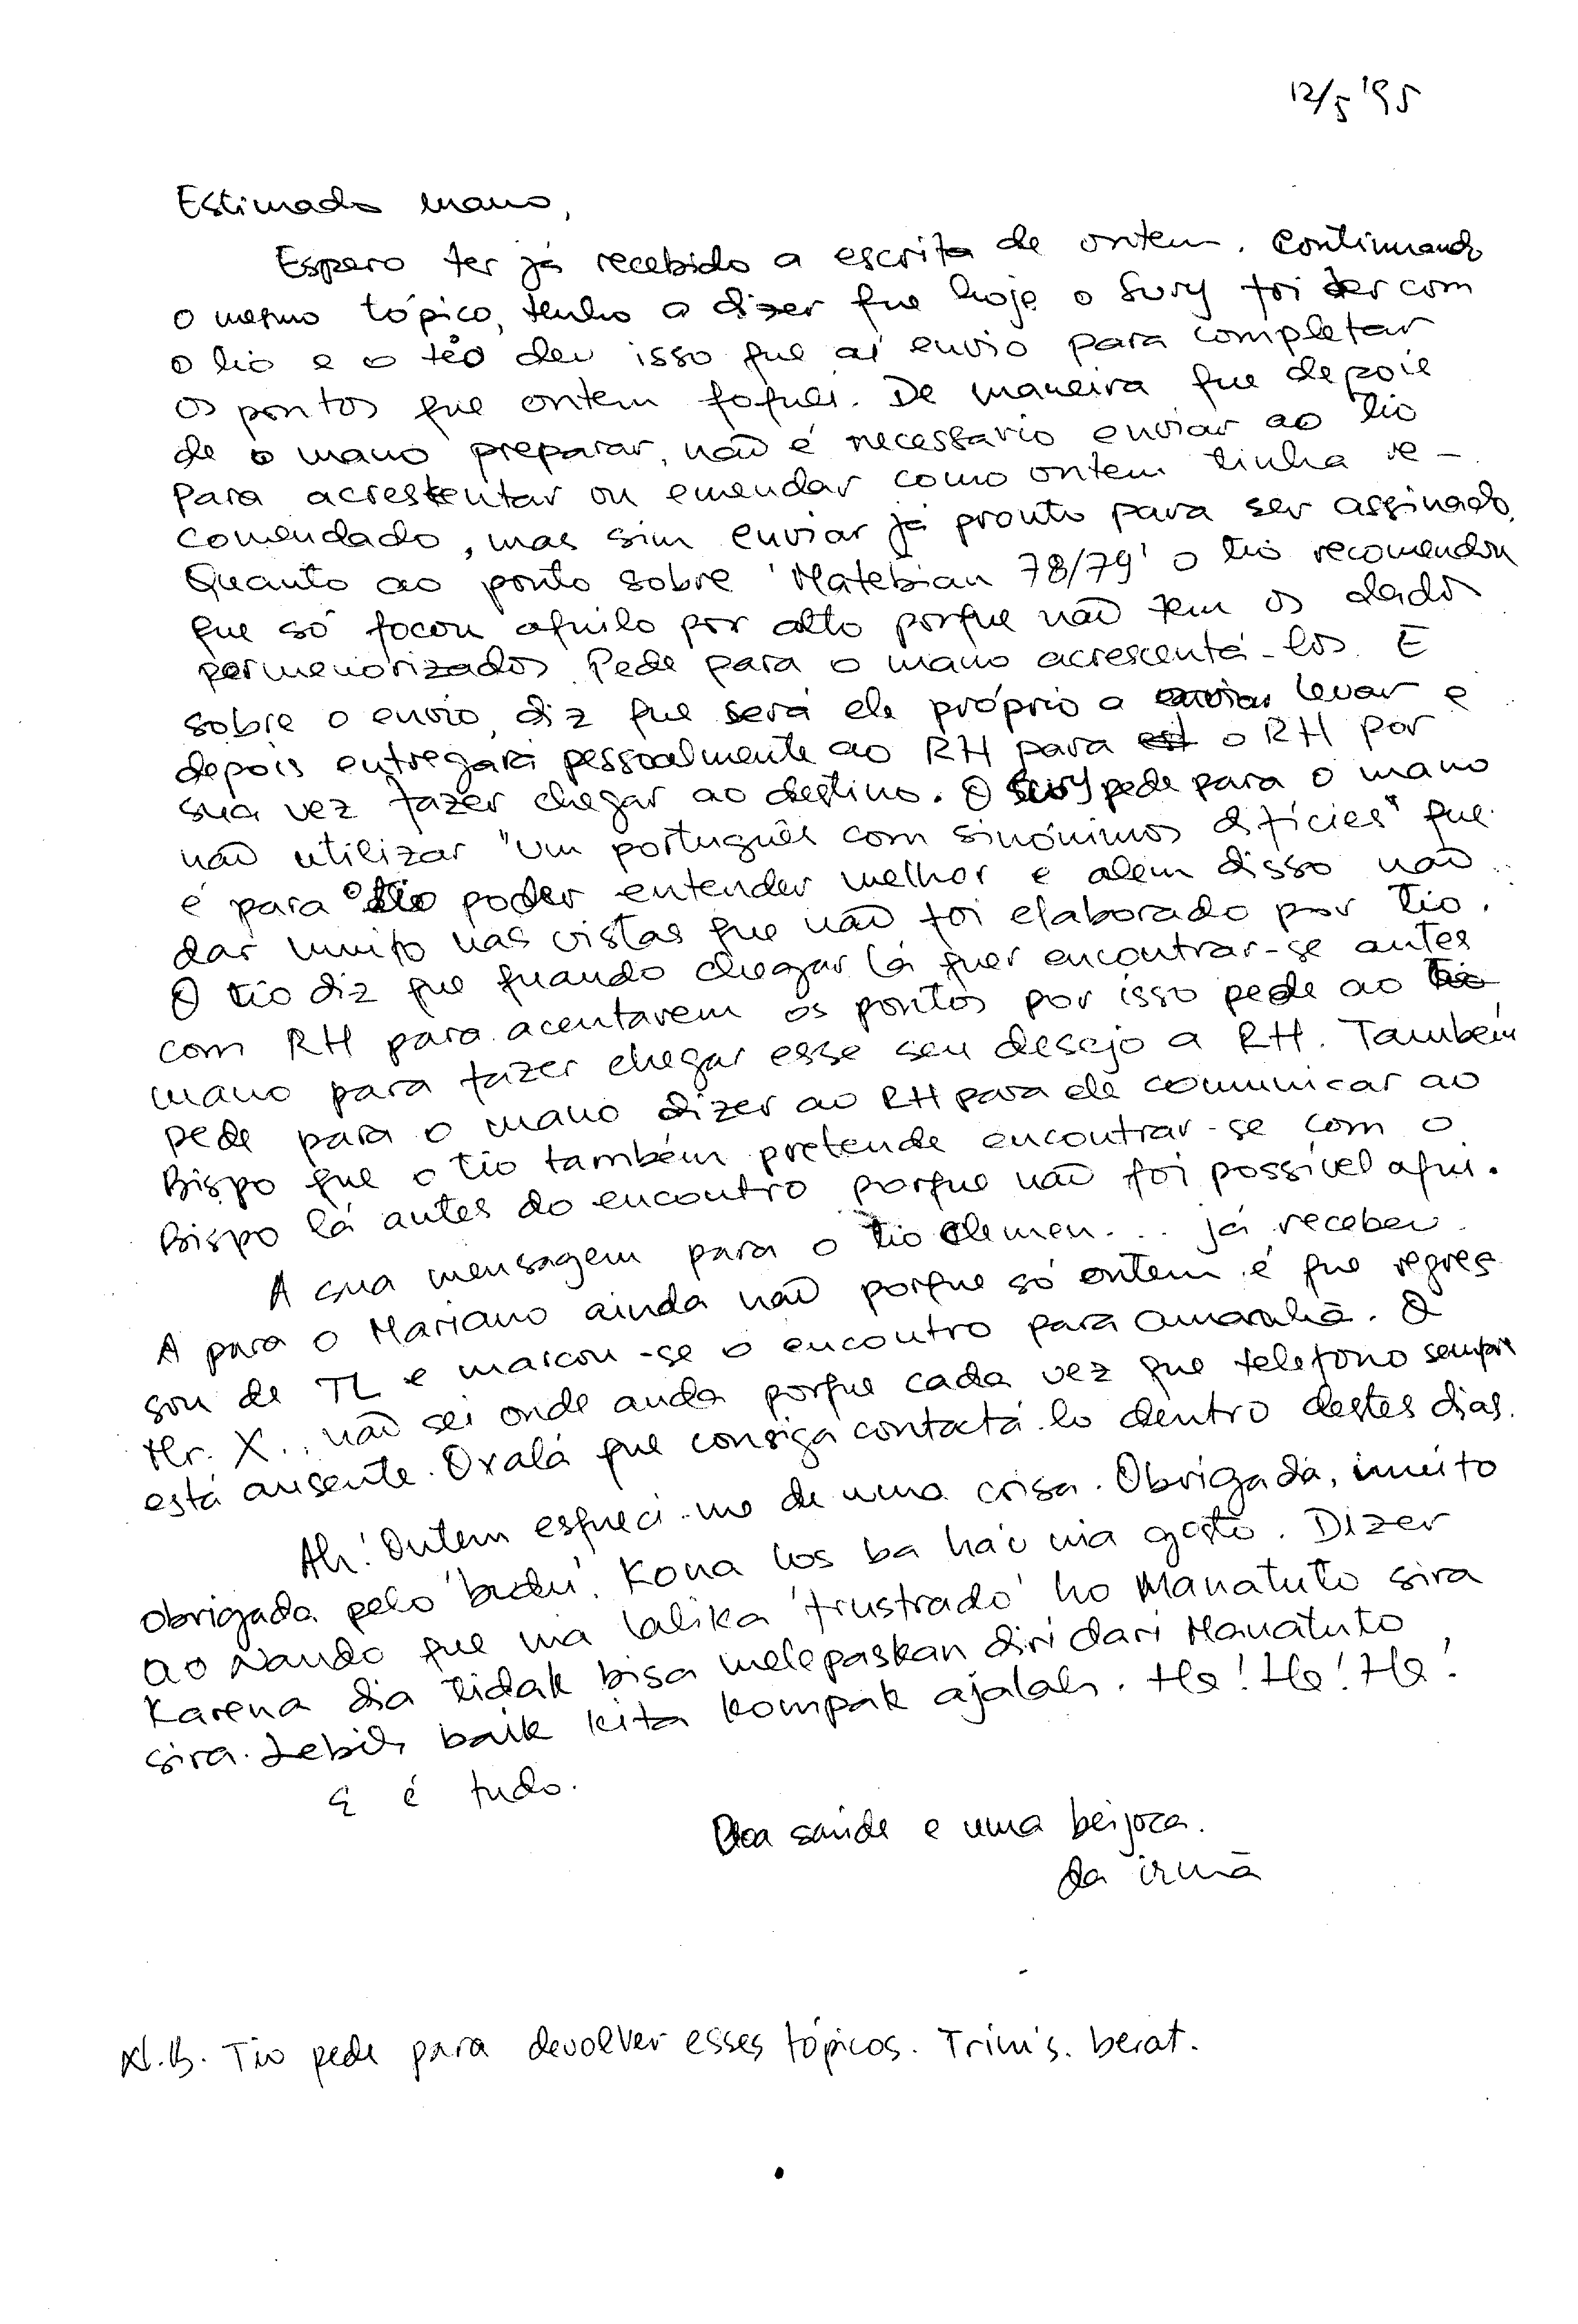 12/5 '95
Estimado mano,
Espero ter já recebido a escrita de ontem. Continuando
o mesmo tópico, tenho a dizer que hoje o Sury foi ter com
o tio e o tio deu isso que aí envio para completar
os pontos que ontem foquei. De maneira que depois
de o mano preparar, não é necessário enviar ao tio
para acrescentar ou emendar como ontem tinha re-
comendado, mas sim enviar já pronto para ser assinado.
Quanto ao ponto sobre 'Matebian 78/79' o tio recomendou
que só focou aquilo por alto porque não tem os dados
permenorizados. Pede para o mano acrescentá-los. E
sobre o envio, diz que será ele próprio a enviar levar e
depois entregará pessoalmente ao RH para est o RH por
sua vez fazer chegar ao destino. O Sury pede para o mano
não utilizar "um português com sinónimos difícies" que
é para o tio poder entender melhor e além disso não
dar muito nas vistas que não foi elaborado por tio.
O tio diz que quando chegar lá quer encontrar-se antes
com RH para acentarem os pontos por isso pede ao tio
mano para fazer chegar esse seu desejo a RH. Também
pede para o mano dizer ao RH para ele comunicar ao
Bispo que o tio também pretende encontrar-se com o
Bispo lá antes do encontro porque não foi possível aqui.
A sua mensagem para o tio Clemen... já recebeu.
A para o Mariano ainda não porque só ontem é que regres
sou de TL e marcou-se o encontro para amanhã. O
Mr. X.. não sei onde anda porque cada vez que telefono sempre
está ausente. Oxalá que consiga contactá-lo dentro destes dias.
Ah! Ontem esqueci-me de uma coisa. Obrigada, muito
obrigada pelo 'badu'. Kona los ba ha'u nia gosto. Dizer
ao Nando que nia lalika 'frustrado' ho Manatuto sira
karena dia tidak bisa melepaskan diri dari Manatuto
sira. Lebih baik kita kompak ajalah. He! He! He!
E é tudo.
Boa saúde e uma beijoca.
da irmã
N.B. Tio pede para devolver esses tópicos. Trim's. berat.